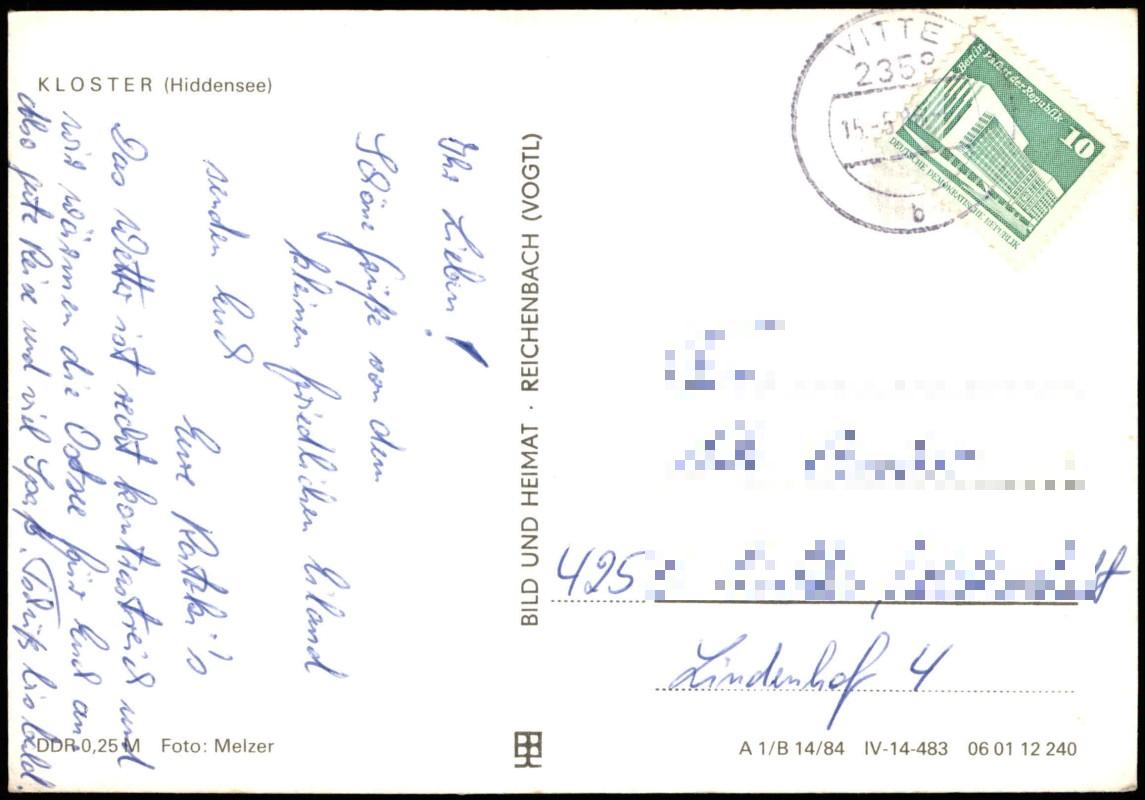 KLOSTER (Hiddensee)
Ihr Lieben!
Schöne Grüße von dem
kleinen friedlichen Eiland
senden Euch
Eure
Das Wetter ist recht kontrastreich und
wir wärmen die Ostsee für Euch an.
Also gute Reise und viel Spaß. Tschüß bis bald.
DDR 0,25 M Foto: Melzer
BILD UND HEIMAT · REICHENBACH (VOGTL)
VITTE
235
15.-5.
b
Berlin, Palast der Republik
10
DEUTSCHE DEMOKRATISCHE REPUBLIK
425
Lindenhof 4
A 1/B 14/84 IV-14-483 06 01 12 240